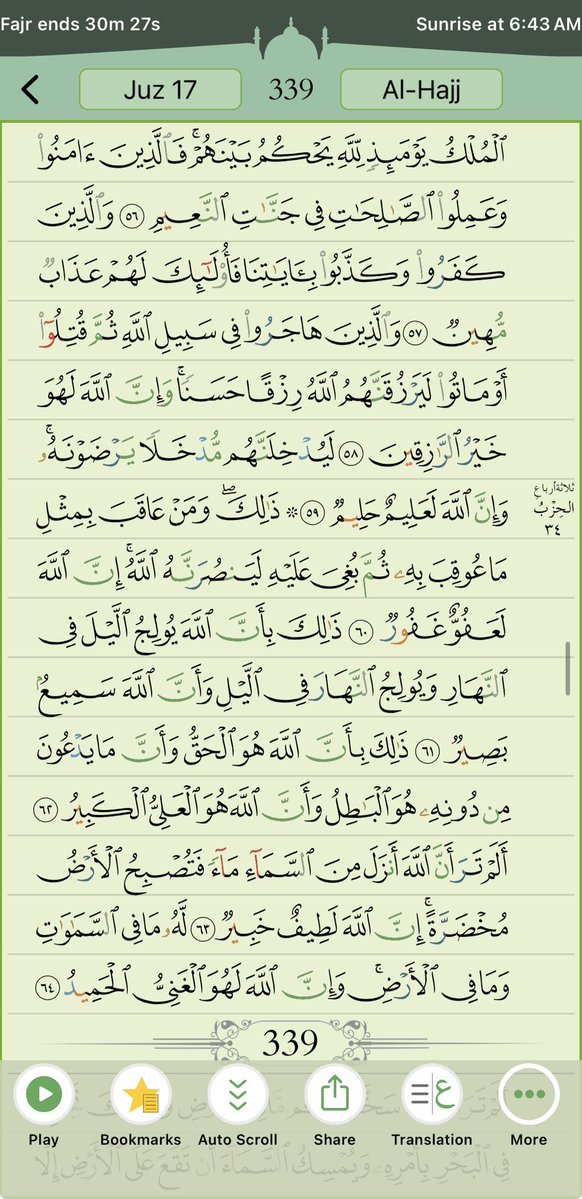 Fajr ends 30m 27s Sunrise at 6:43 AM
Juz 17 339 Al-Hajj
ٱلْمُلْكُ يَوْمَئِذٍ لِّلَّهِ يَحْكُمُ بَيْنَهُمْ ۚ فَٱلَّذِينَ ءَامَنُوا۟
وَعَمِلُوا۟ ٱلصَّـٰلِحَـٰتِ فِى جَنَّـٰتِ ٱلنَّعِيمِ ٥٦ وَٱلَّذِينَ
كَفَرُوا۟ وَكَذَّبُوا۟ بِـَٔايَـٰتِنَا فَأُو۟لَـٰٓئِكَ لَهُمْ عَذَابٌ
مُّهِينٌ ٥٧ وَٱلَّذِينَ هَاجَرُوا۟ فِى سَبِيلِ ٱللَّهِ ثُمَّ قُتِلُوٓا۟
أَوْ مَاتُوا۟ لَيَرْزُقَنَّهُمُ ٱللَّهُ رِزْقًا حَسَنًا ۚ وَإِنَّ ٱللَّهَ لَهُوَ
خَيْرُ ٱلرَّٰزِقِينَ ٥٨ لَيُدْخِلَنَّهُم مُّدْخَلًا يَرْضَوْنَهُۥ ۗ
وَإِنَّ ٱللَّهَ لَعَلِيمٌ حَلِيمٌ ٥٩ ۞ ذَٰلِكَ ۖ وَمَنْ عَاقَبَ بِمِثْلِ
ثلاثة أرباع
الحزب
٣٤
مَا عُوقِبَ بِهِۦ ثُمَّ بُغِىَ عَلَيْهِ لَيَنصُرَنَّهُ ٱللَّهُ ۗ إِنَّ ٱللَّهَ
لَعَفُوٌّ غَفُورٌ ٦٠ ذَٰلِكَ بِأَنَّ ٱللَّهَ يُولِجُ ٱلَّيْلَ فِى
ٱلنَّهَارِ وَيُولِجُ ٱلنَّهَارَ فِى ٱلَّيْلِ وَأَنَّ ٱللَّهَ سَمِيعٌۢ
بَصِيرٌ ٦١ ذَٰلِكَ بِأَنَّ ٱللَّهَ هُوَ ٱلْحَقُّ وَأَنَّ مَا يَدْعُونَ
مِن دُونِهِۦ هُوَ ٱلْبَـٰطِلُ وَأَنَّ ٱللَّهَ هُوَ ٱلْعَلِىُّ ٱلْكَبِيرُ ٦٢
أَلَمْ تَرَ أَنَّ ٱللَّهَ أَنزَلَ مِنَ ٱلسَّمَآءِ مَآءً فَتُصْبِحُ ٱلْأَرْضُ
مُخْضَرَّةً ۗ إِنَّ ٱللَّهَ لَطِيفٌ خَبِيرٌ ٦٣ لَّهُۥ مَا فِى ٱلسَّمَـٰوَٰتِ
وَمَا فِى ٱلْأَرْضِ ۗ وَإِنَّ ٱللَّهَ لَهُوَ ٱلْغَنِىُّ ٱلْحَمِيدُ ٦٤
339
Play Bookmarks Auto Scroll Share Translation More
فِى ٱلْبَحْرِ بِأَمْرِهِۦ وَيُمْسِكُ ٱلسَّمَآءَ أَن تَقَعَ عَلَى ٱلْأَرْضِ إِلَّا